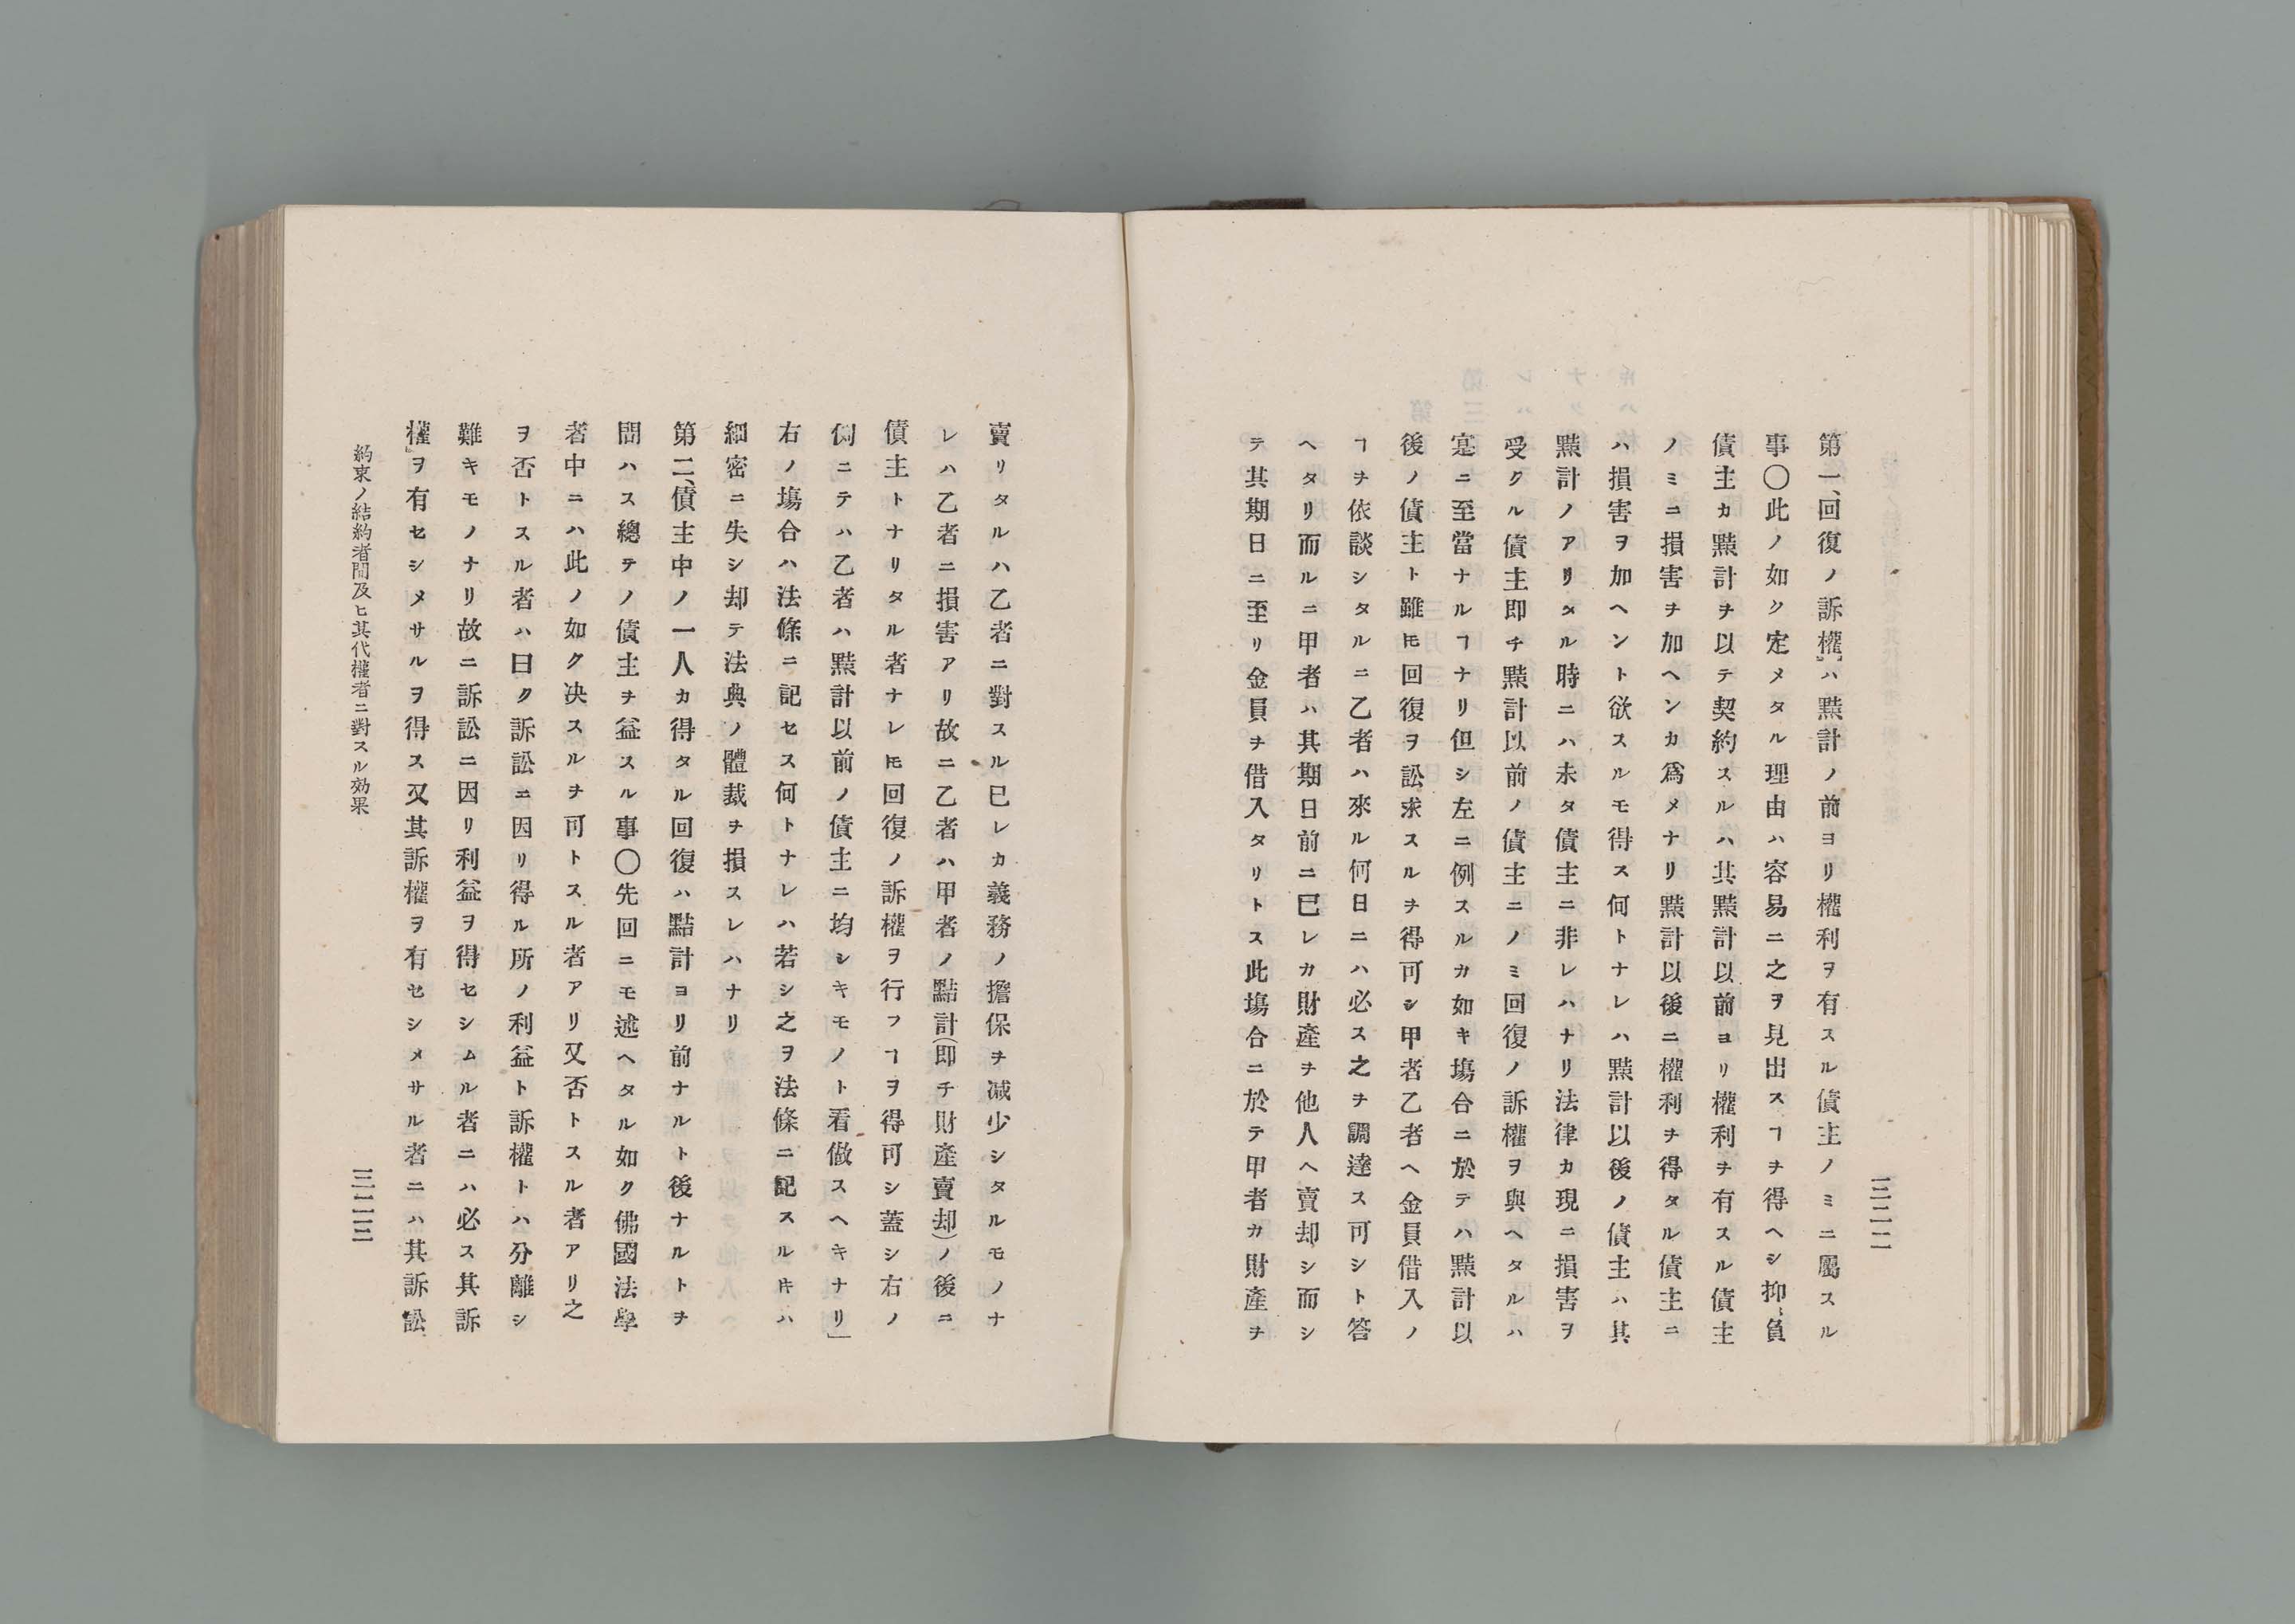 三二二
第一、回復ノ訴權ハ㸃計ノ前ヨリ權利ヲ有スル債主ノミニ屬スル
事〇此ノ如ク定メタル理由ハ容易ニ之ヲ見出スヿヲ得ヘシ抑、負
債主カ㸃計ヲ以テ契約スルハ其㸃計以前ヨリ權利ヲ有スル債主
ノミニ損害ヲ加ヘンカ爲メナリ㸃計以後ニ權利ヲ得タル債主ニ
ハ損害ヲ加ヘント欲スルモ得ス何トナレハ㸃計以後ノ債主ハ其
㸃計ノアリタル時ニハ未タ債主ニ非レハナリ法律カ現ニ損害ヲ
受クル債主即チ㸃計以前ノ債主ニノミ回復ノ訴權ヲ與ヘタルハ
寔ニ至當ナルヿナリ但シ左ニ例スルカ如キ塲合ニ於テハ㸃計以
後ノ債主ト雖𪜈回復ヲ訟求スルヲ得可シ甲者乙者ヘ金員借入ノ
ヿヲ依談シタルニ乙者ハ來ル何日ニハ必ス之ヲ調達ス可シト答
ヘタリ而ルニ甲者ハ其期日前ニ已レカ財產ヲ他人ヘ賣却シ而シ
テ其期日ニ至リ金員ヲ借入タリトス此塲合ニ於テ甲者カ財產ヲ
賣リタルハ乙者ニ對スル已レカ義務ノ擔保ヲ减少シタルモノナ
レハ乙者ニ損害アリ故ニ乙者ハ甲者ノ點計(即チ財產賣却)ノ後ニ
債主トナリタル者ナレ𪜈回復ノ訴權ヲ行フヿヲ得可シ蓋シ右ノ
例ニテハ乙者ハ㸃計以前ノ債主ニ均シキモノト看做スヘキナリ」
右ノ塲合ハ法條ニ記セス何トナレハ若シ之ヲ法條ニ記スル𪜈ハ
細密ニ失シ却テ法典ノ體裁ヲ損スレハナリ
第二、債主中ノ一人カ得タル回復ハ點計ヨリ前ナルト後ナルトヲ
問ハス總テノ債主ヲ益スル事〇先回ニモ述ヘタル如ク佛國法學
者中ニハ此ノ如ク决スルヲ可トスル者アリ又否トスル者アリ之
ヲ否トスル者ハ曰ク訴訟ニ因リ得ル所ノ利益ト訴權トハ分離シ
難キモノナリ故ニ訴訟ニ因リ利益ヲ得セシムル者ニハ必ス其訴
權ヲ有セシメサルヲ得ス又其訴權ヲ有セシメサル者ニハ其訴訟
約束ノ結約者間及ヒ其代權者ニ對スル効果
三二三